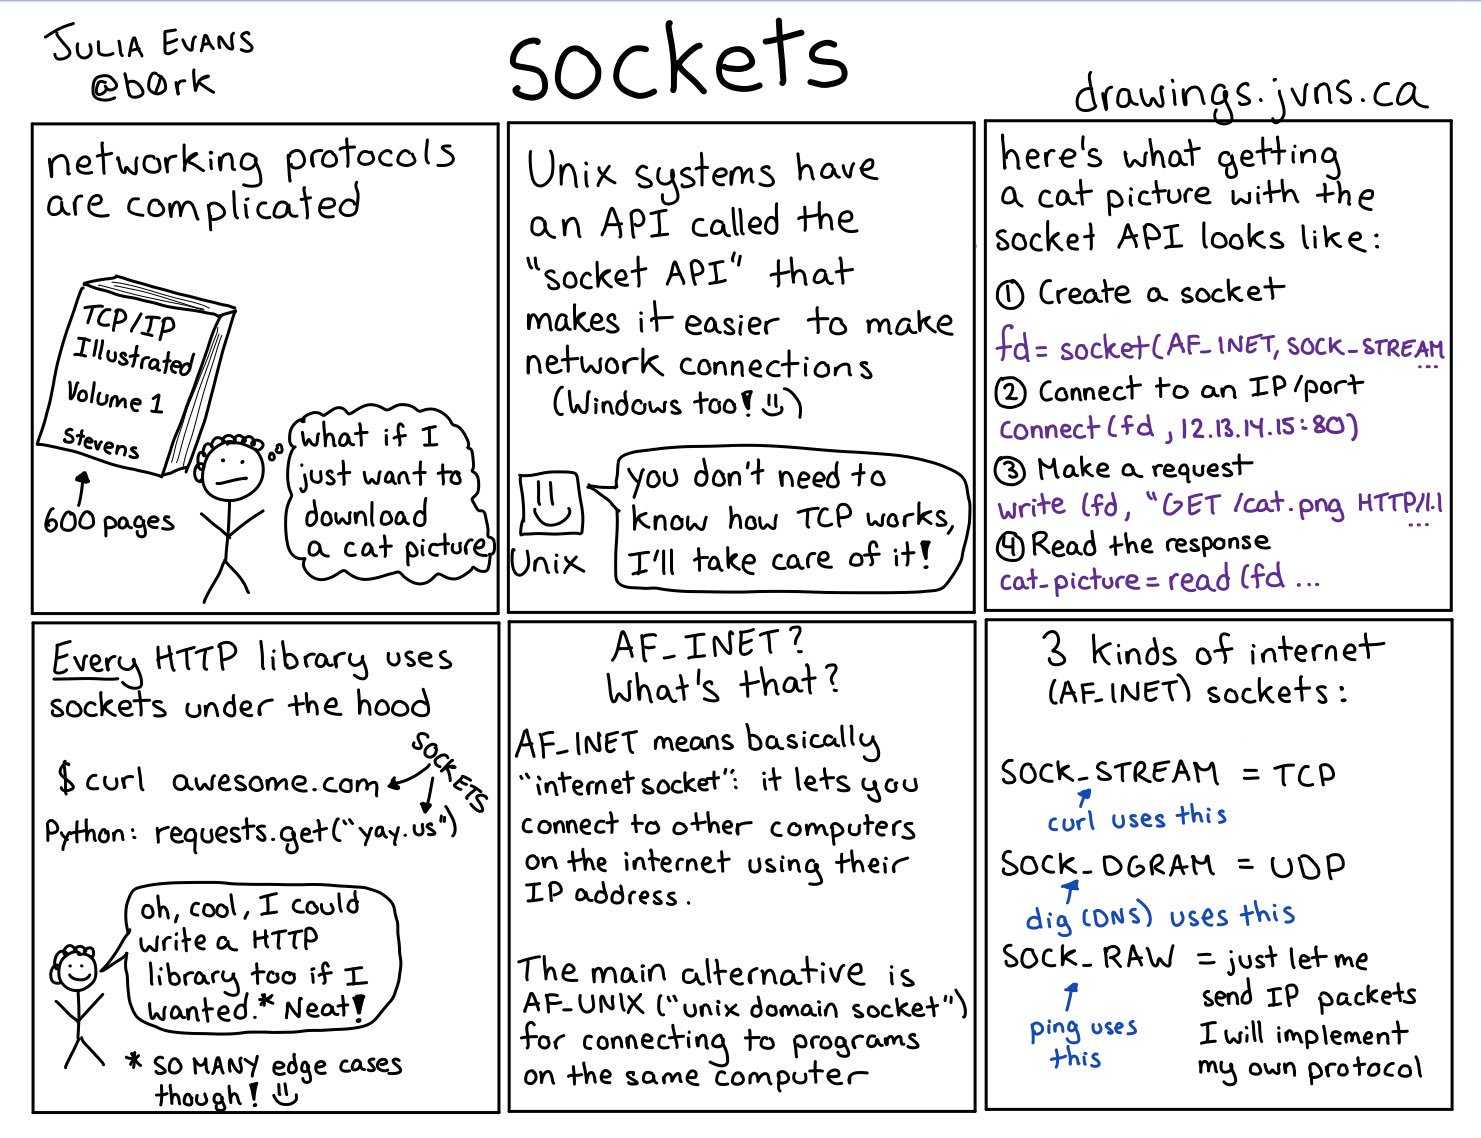 JULIA EVANS
@b0rk
sockets
drawings.jvns.ca
networking protocols
are complicated
TCP/IP
Illustrated
Volume 1
Stevens
600 pages
what if I
just want to
download
a cat picture
Unix systems have
an API called the
"socket API" that
makes it easier to make
network connections
(Windows too! )
you don't need to
know how TCP works,
I'll take care of it!
Unix
here's what getting
a cat picture with the
socket API looks like:
① Create a socket
fd = socket(AF_INET, SOCK_STREAM
...
② Connect to an IP/port
connect (fd, 12.13.14.15:80)
③ Make a request
write (fd, "GET /cat.png HTTP/1.1
...
④ Read the response
cat_picture = read (fd ...
Every HTTP library uses
sockets under the hood
$ curl awesome.com
SOCKETS
Python: requests.get("yay.us")
oh, cool, I could
write a HTTP
library too if I
wanted.* Neat!
* SO MANY edge cases
though!
AF_INET?
What's that?
AF_INET means basically
"internet socket": it lets you
connect to other computers
on the internet using their
IP address.
The main alternative is
AF_UNIX ("unix domain socket")
for connecting to programs
on the same computer
3 kinds of internet
(AF_INET) sockets:
SOCK_STREAM = TCP
curl uses this
SOCK_DGRAM = UDP
dig (DNS) uses this
SOCK_RAW = just let me
send IP packets
I will implement
my own protocol
ping uses
this